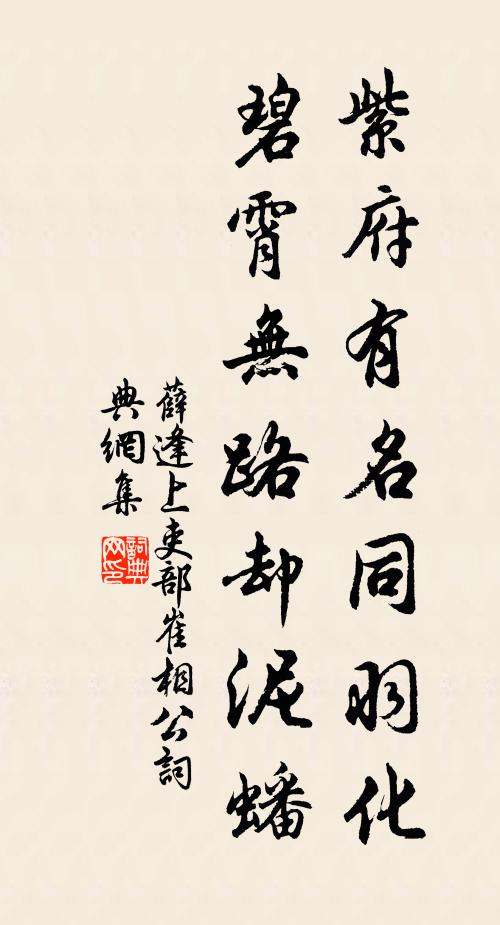 紫府有名同羽化
碧霄無路却泥蟠
薛逢上吏部崔相公詞
典網集
詞典
网印